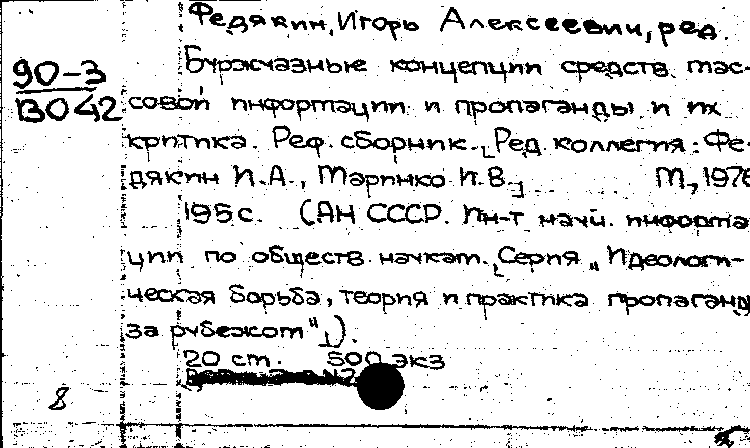 Федякин, Игорь Алексеевич, ред.
90-3
Буржуазные концепции средств мас-
В042
совой информации и пропаганды и их
критика. Реф. сборник. [Ред. коллегия: Фе-
дякин И.А., Маринко И.В.] М, 1976
195с. (АН СССР. Ин-т науч. информа
ции по обществ. наукам. [Серия „Идеологи-
ческая борьба, теория и практика пропаганд
за рубежом"]).
20 см. 500 экз
8